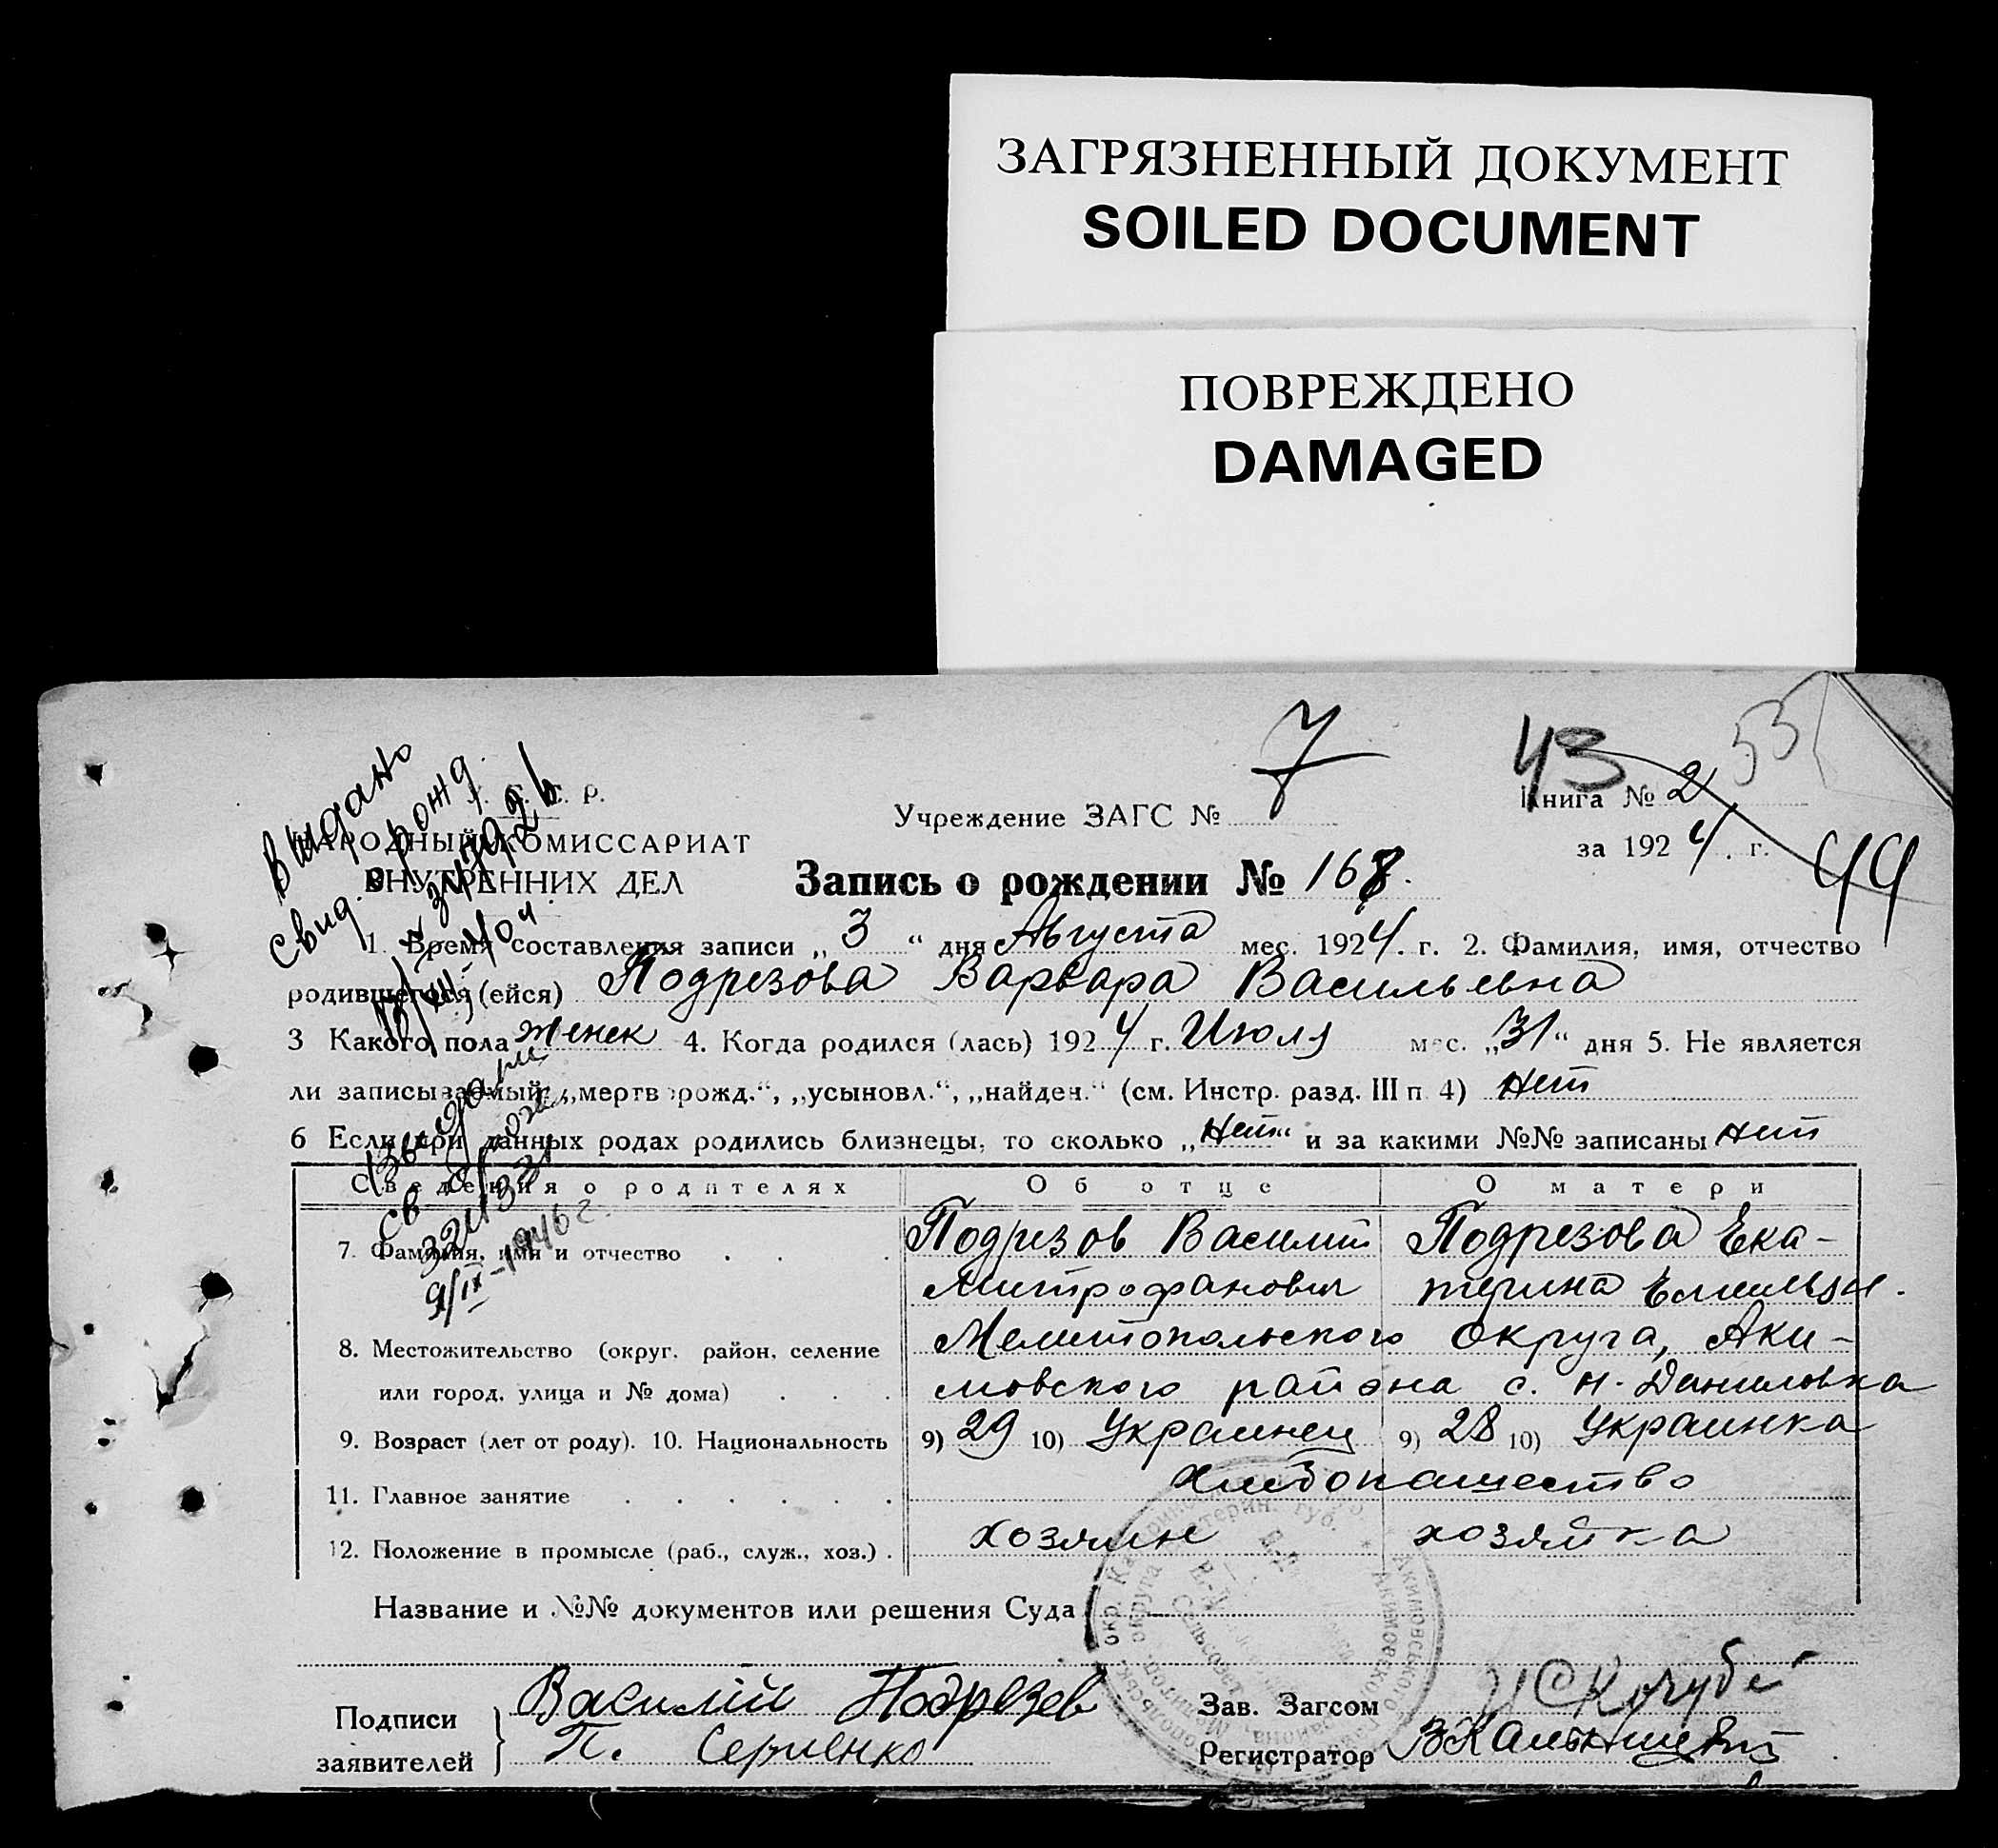 ЗАГРЯЗНЕННЫЙ ДОКУМЕНТ
SOILED DOCUMENT
ПОВРЕЖДЕНО
DAMAGED
7
43
53
44
Учреждение ЗАГС №
Книга № 2
за 1924 г.
НАРОДНЫЙ КОМИССАРИАТ
ВНУТРЕННИХ ДЕЛ
Запись о рождении № 168.
1. Время составления записи „3“ дня Августа мес. 1924 г. 2. Фамилия, имя, отчество
родившегося (ейся) Подрезова Варвара Васильевна
3 Какого пола женск 4. Когда родился (лась) 1924 г. Июля мес. „31“ дня 5. Не является
ли записываемый: „мертворожд.“, „усыновл.“, „найден.“ (см. Инстр. разд. III п. 4) Нет
6 Если при данных родах родились близнецы, то сколько „Нет“ и за какими №№ записаны нет
Сведения о родителях Об отце О матери
7. Фамилия, имя и отчество Подрезов Василий Подрезова Ека-
Митрофанович терина
8. Местожительство (округ, район, селение Мелитопольского Округа, Аки-
или город, улица и № дома) мовского района с. Н-Даниловка
9. Возраст (лет от роду). 10. Национальность 9) 29 10) Украинец 9) 28 10) Украинка
11. Главное занятие Хлебопашество
12. Положение в промысле (раб., служ., хоз.) хозяин хозяйка
Название и №№ документов или решения Суда
Подписи заявителей Василий Подрезов
П. Сергиенко
Зав. Загсом Кочубей
Регистратор
Видано
свид. о рожд.
Выдали
св. о рожд
9/IX-1946 г.